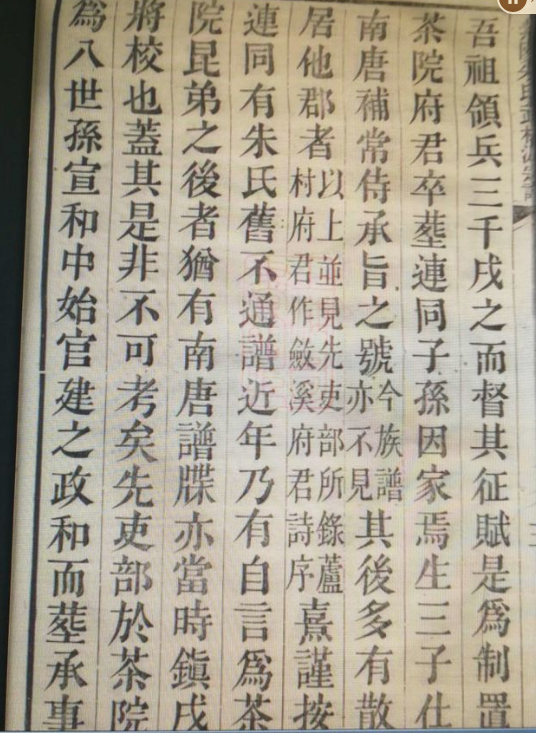 吾祖領兵三千戍之而督其征賦是爲制置
茶院府君卒塟連同子孫因家焉生三子仕
南唐補常侍承旨之號今族譜亦不見其後多有散
居他郡者以上並見先吏部所錄蘆村府君作斂溪府君詩序熹謹按
連同有朱氏舊不通譜近年乃有自言爲茶
院昆弟之後者猶有南唐譜牒亦當時鎮戍
將校也蓋其是非不可考矣先吏部於茶院
爲八世孫宣和中始官建之政和而塟承事